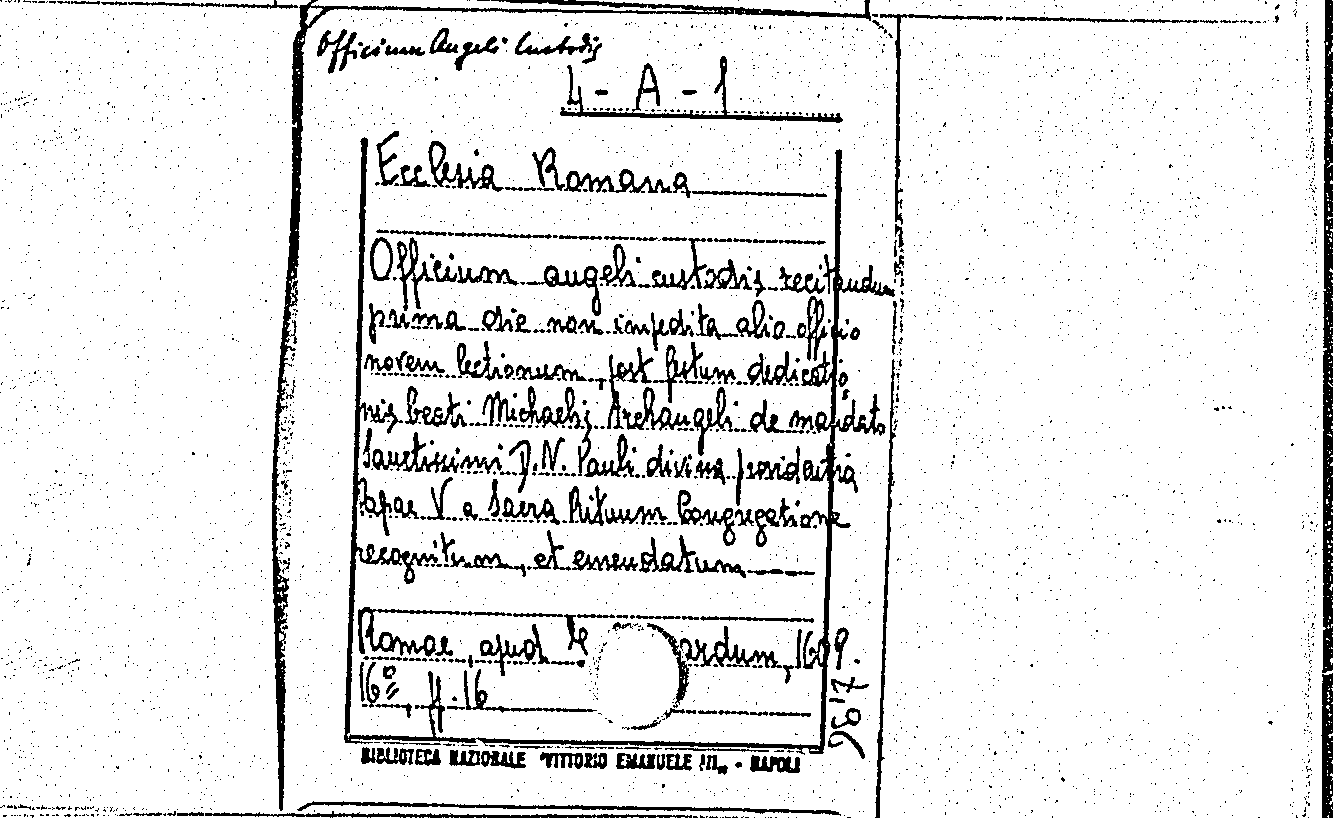 Officium Angeli Custodis
4 - A - 1
Ecclesia Romana
Officium angeli custodis recitandum
prima die non impedita alio officio
novem lectionum, post festum dedicatio
nis beati Michaelis Archangeli de mandato
Sanctissimi D.N. Pauli divina providentia
Papae V a Sacra Rituum Congregatione
recognitum, et emendatum
Romae, apud ardum, 1609.
16º, ff. 16
BIBLIOTECA NAZIONALE "VITTORIO EMANUELE III" - NAPOLI